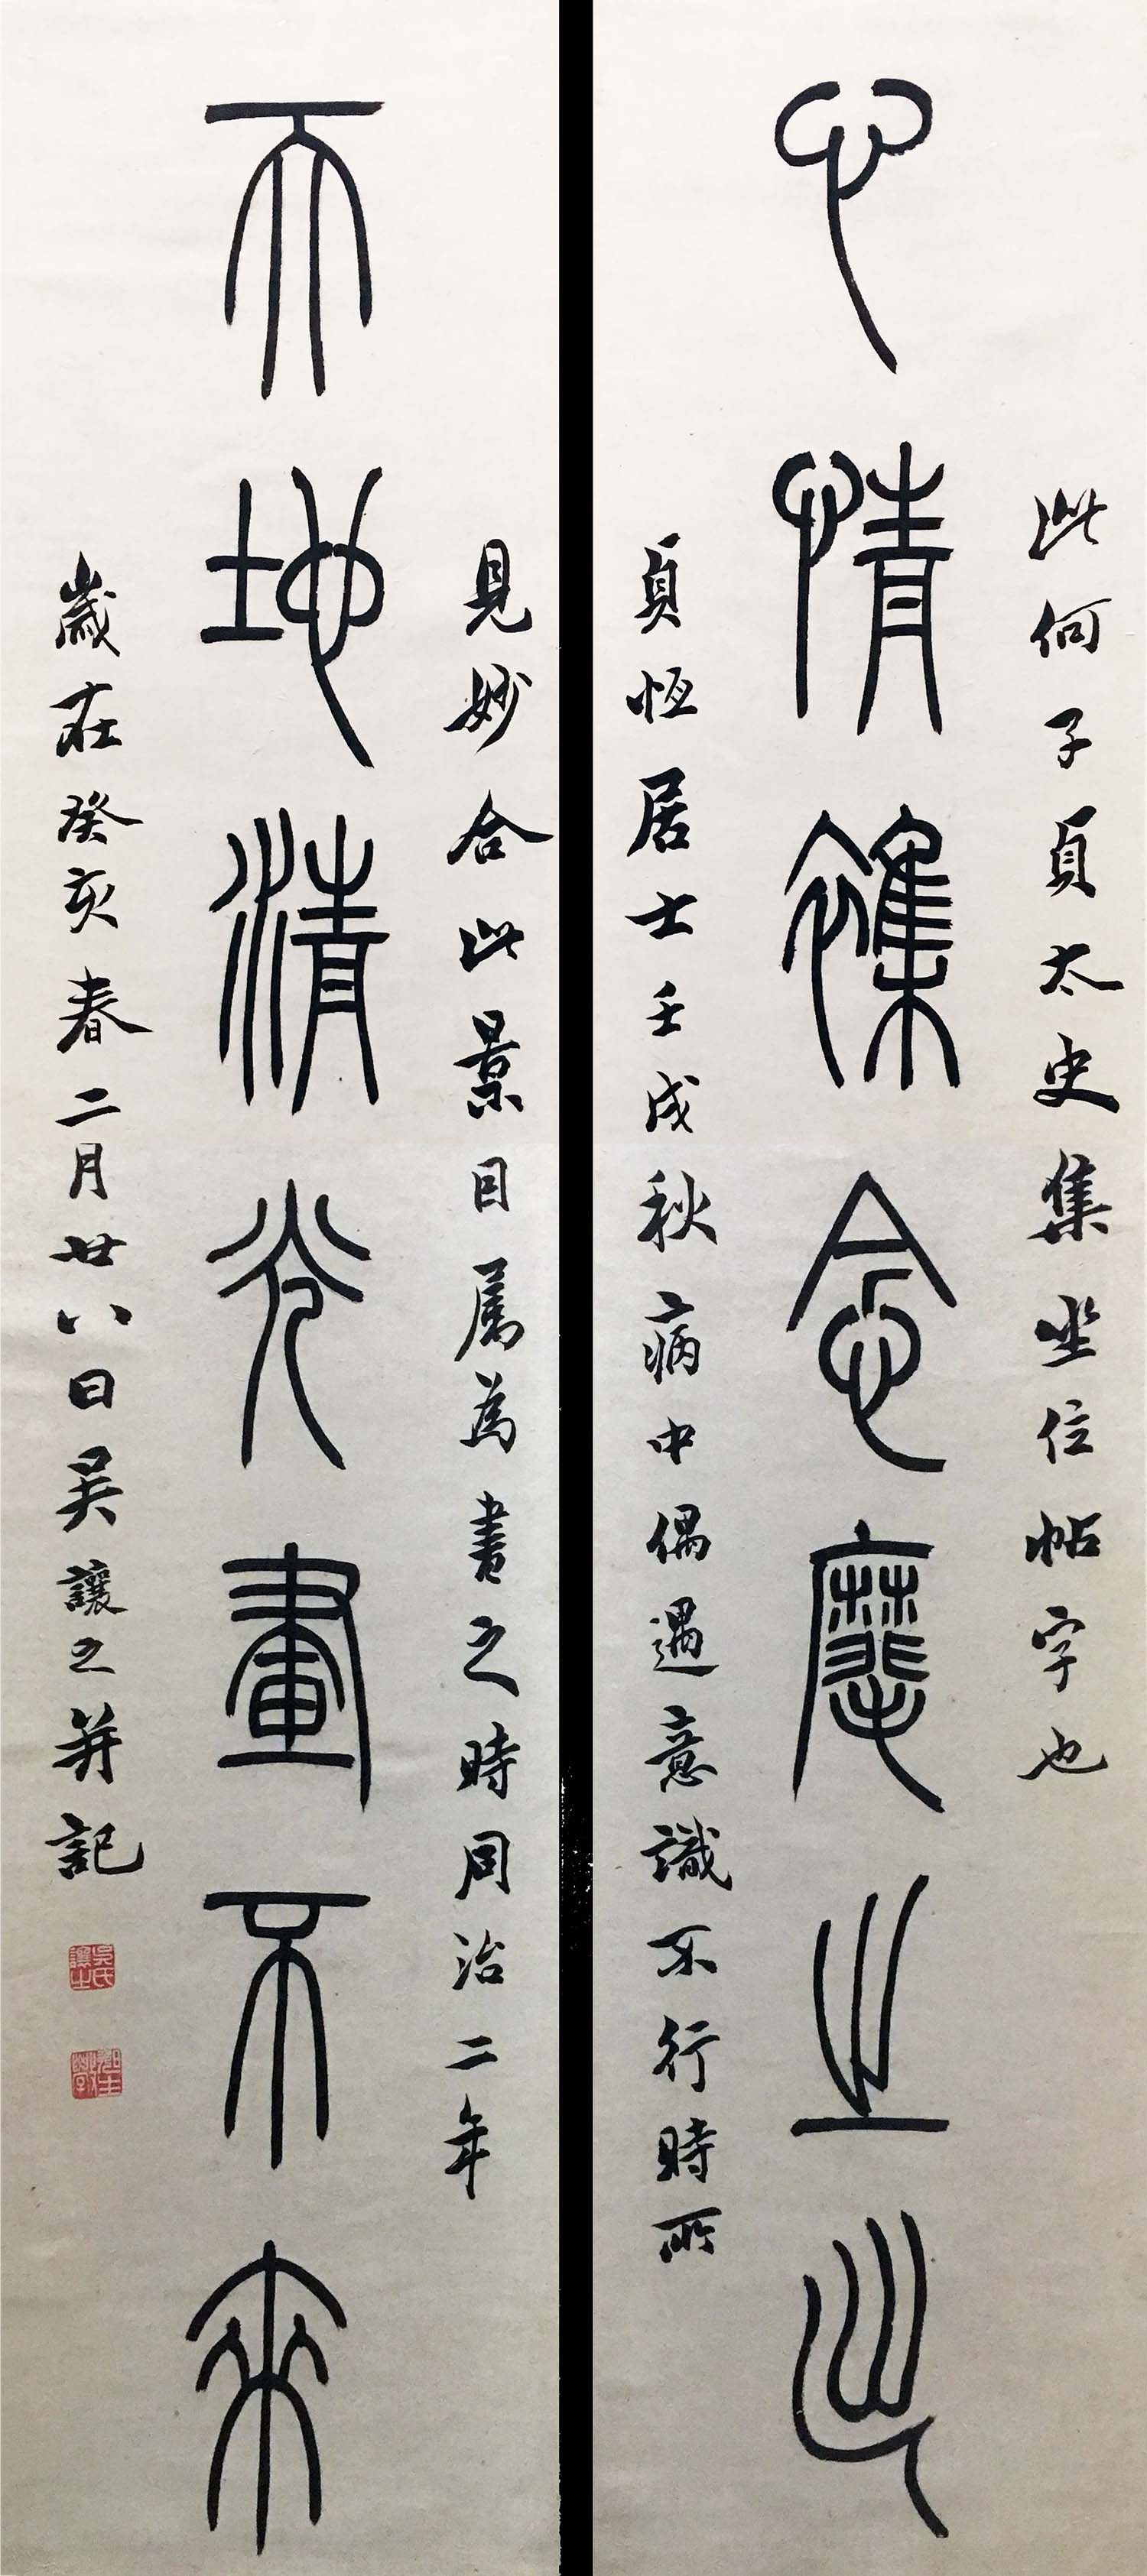 心情襍念麾之出
此何子貞太史集坐位帖字也
貞恆居士壬戌秋病中偶遇意識不行時所
天地清光畫不來
見妙合此景囙屬為書之時同治二年
歲在癸亥春二月廿八日吳讓之并記
吳氏讓之